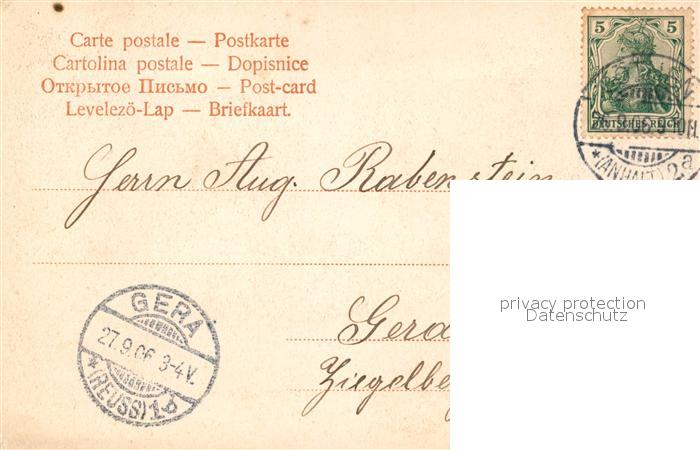 Carte postale — Postkarte
Cartolina postale — Dopisnice
Открытое Письмо — Post-card
Levelező-Lap — Briefkaart.
5 5
DEUTSCHES REICH
(ANHALT) 2a
Herrn Aug. Rabenstein
privacy protection
Datenschutz
GERA
27.9.06 3-4V.
*(REUSS) 1d
Gera
Ziegelbe